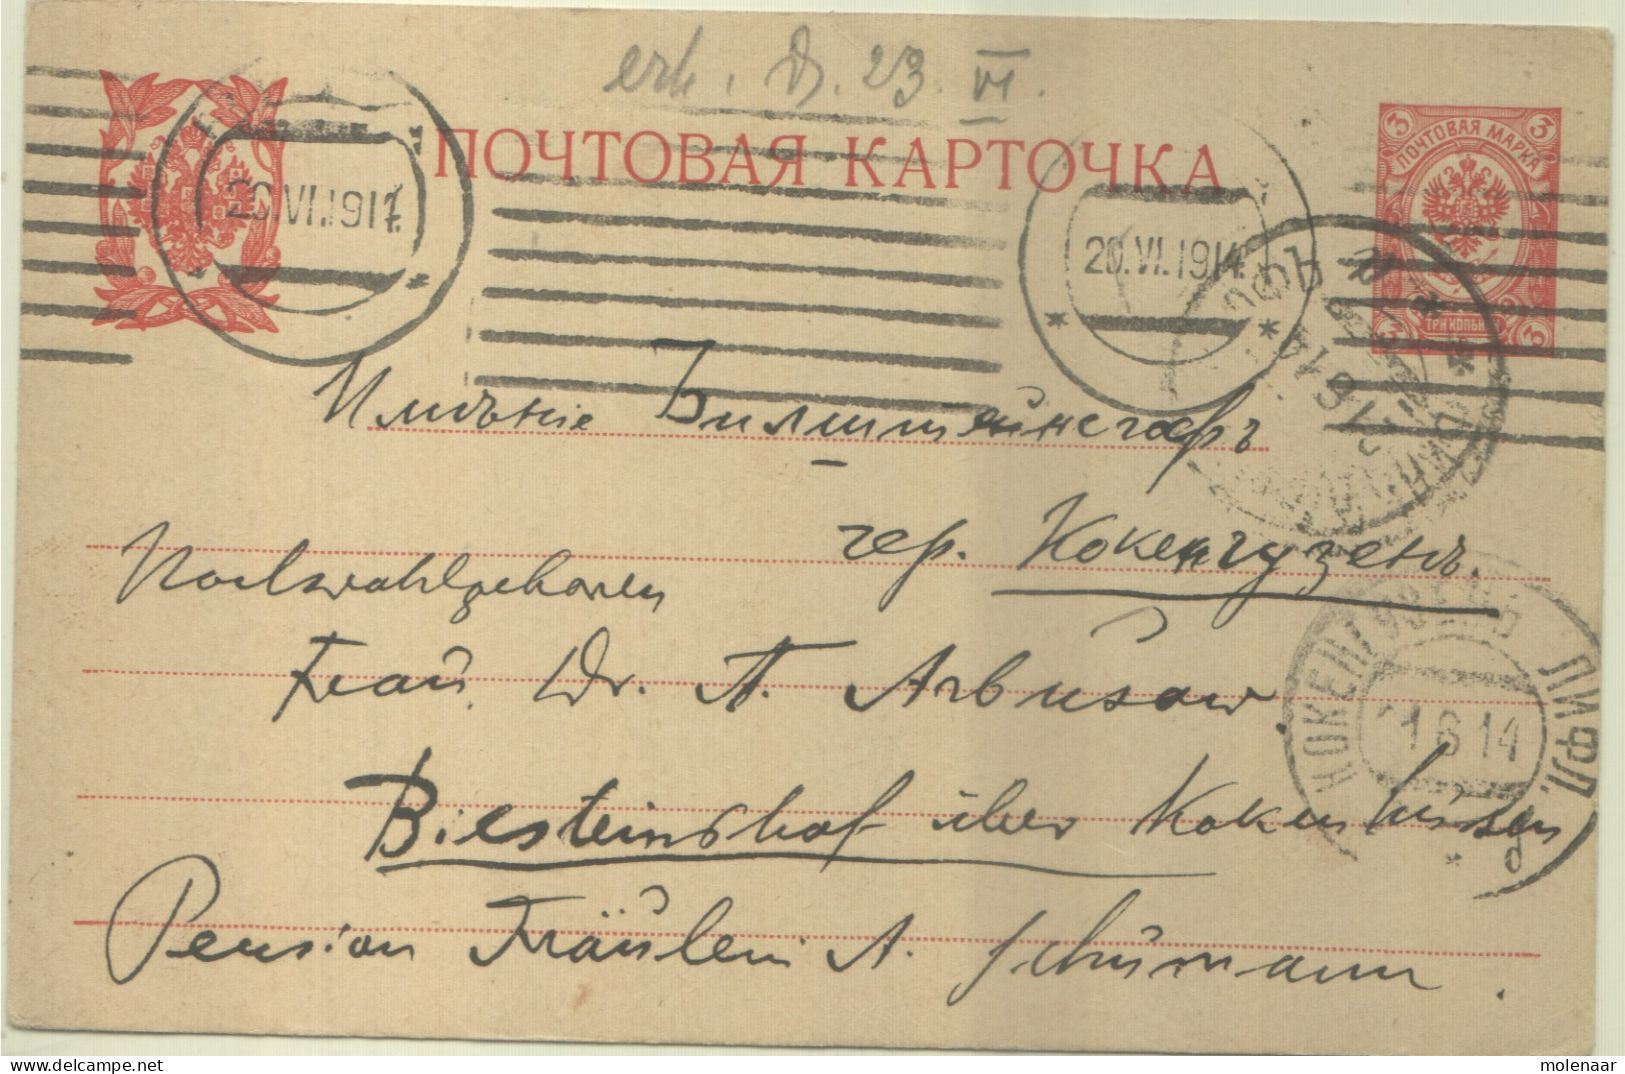 erh. D. 23. VI.
ПОЧТОВАЯ КАРТОЧКА
3 3
ПОЧТОВАЯ МАРКА
3 ТРИ КОП. 3
20.VI.1917.
20.VI.1914.
Имѣніе Билштейнсгофъ
чер. Кокенгузенъ.
Hochwohlgeboren
Frau Dr. A. Arbusow.
Bilsteinshof über Kokenhusen
Pension Fräulein A. Schumann.
КОКЕНГУЗЕНЪ ЛИФЛ.
1 6 14
molenaar